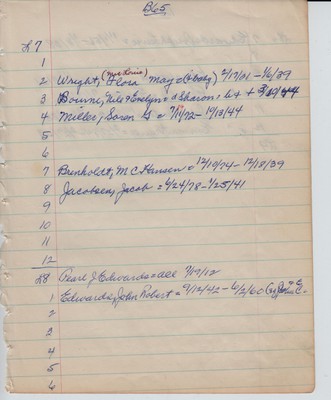 B65
L7
1
2 Wright, (Mrs Louis) Flora May &(baby) 2/17/01 - 1/6/39
3 Bourne, Nile & Evelyn = d Sharon
4 Miller, Soren G = 7/19/72 - 10/13/44
5
6
7 Brenholdt, M C Hansen = 12/19/74 - 12/18/39
8 Jacobsen, Jacob = 6/24/78 - 1/25/41
9
10
11
12
L8 Pearl J Edwards = all 7/19/12
1 Edwards, John Robert = 9/12/42 - 6/2/60
2
3
4
5
6